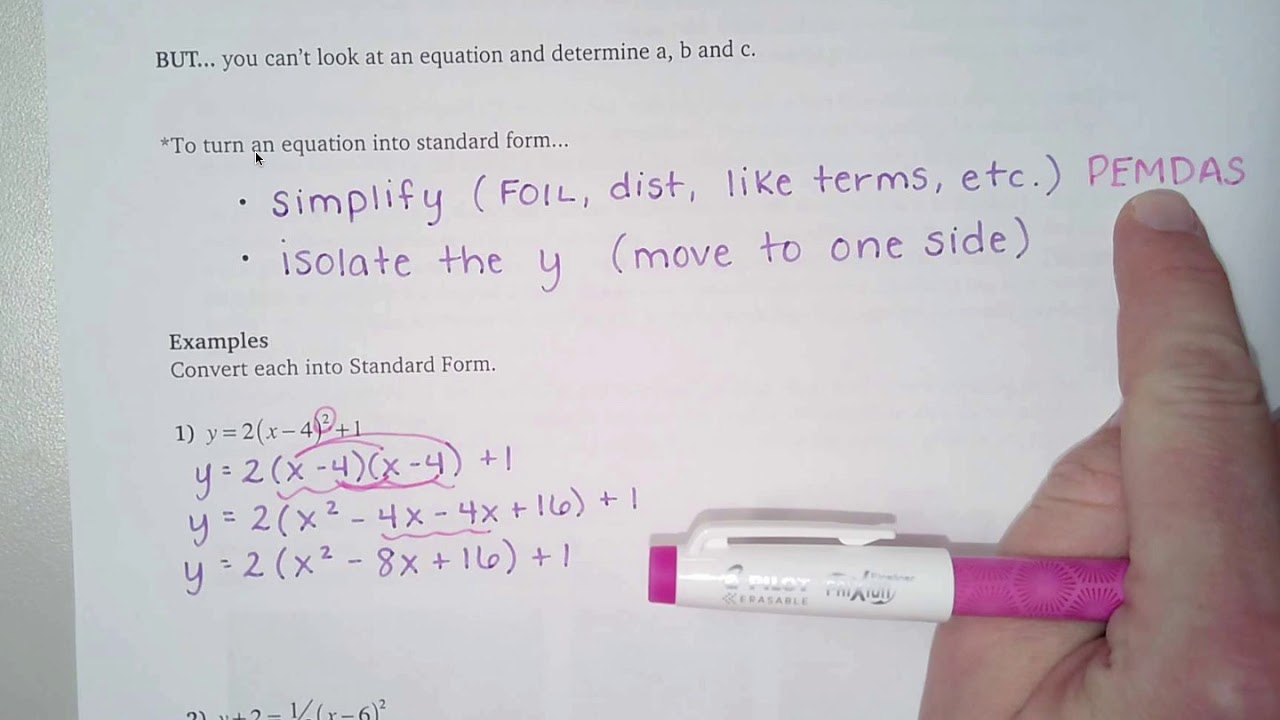 BUT... you can't look at an equation and determine a, b and c.
*To turn an equation into standard form...
• simplify (FOIL, dist, like terms, etc.) PEMDAS
• isolate the y (move to one side)
Examples
Convert each into Standard Form.
1) y=2(x−4)²+1
y = 2(x -4)(x -4) +1
y = 2(x² - 4x - 4x + 16) + 1
y = 2(x² - 8x + 16) + 1
PILOT FRIXION Fineliner
ERASABLE
2) y+2=1/(x−6)²